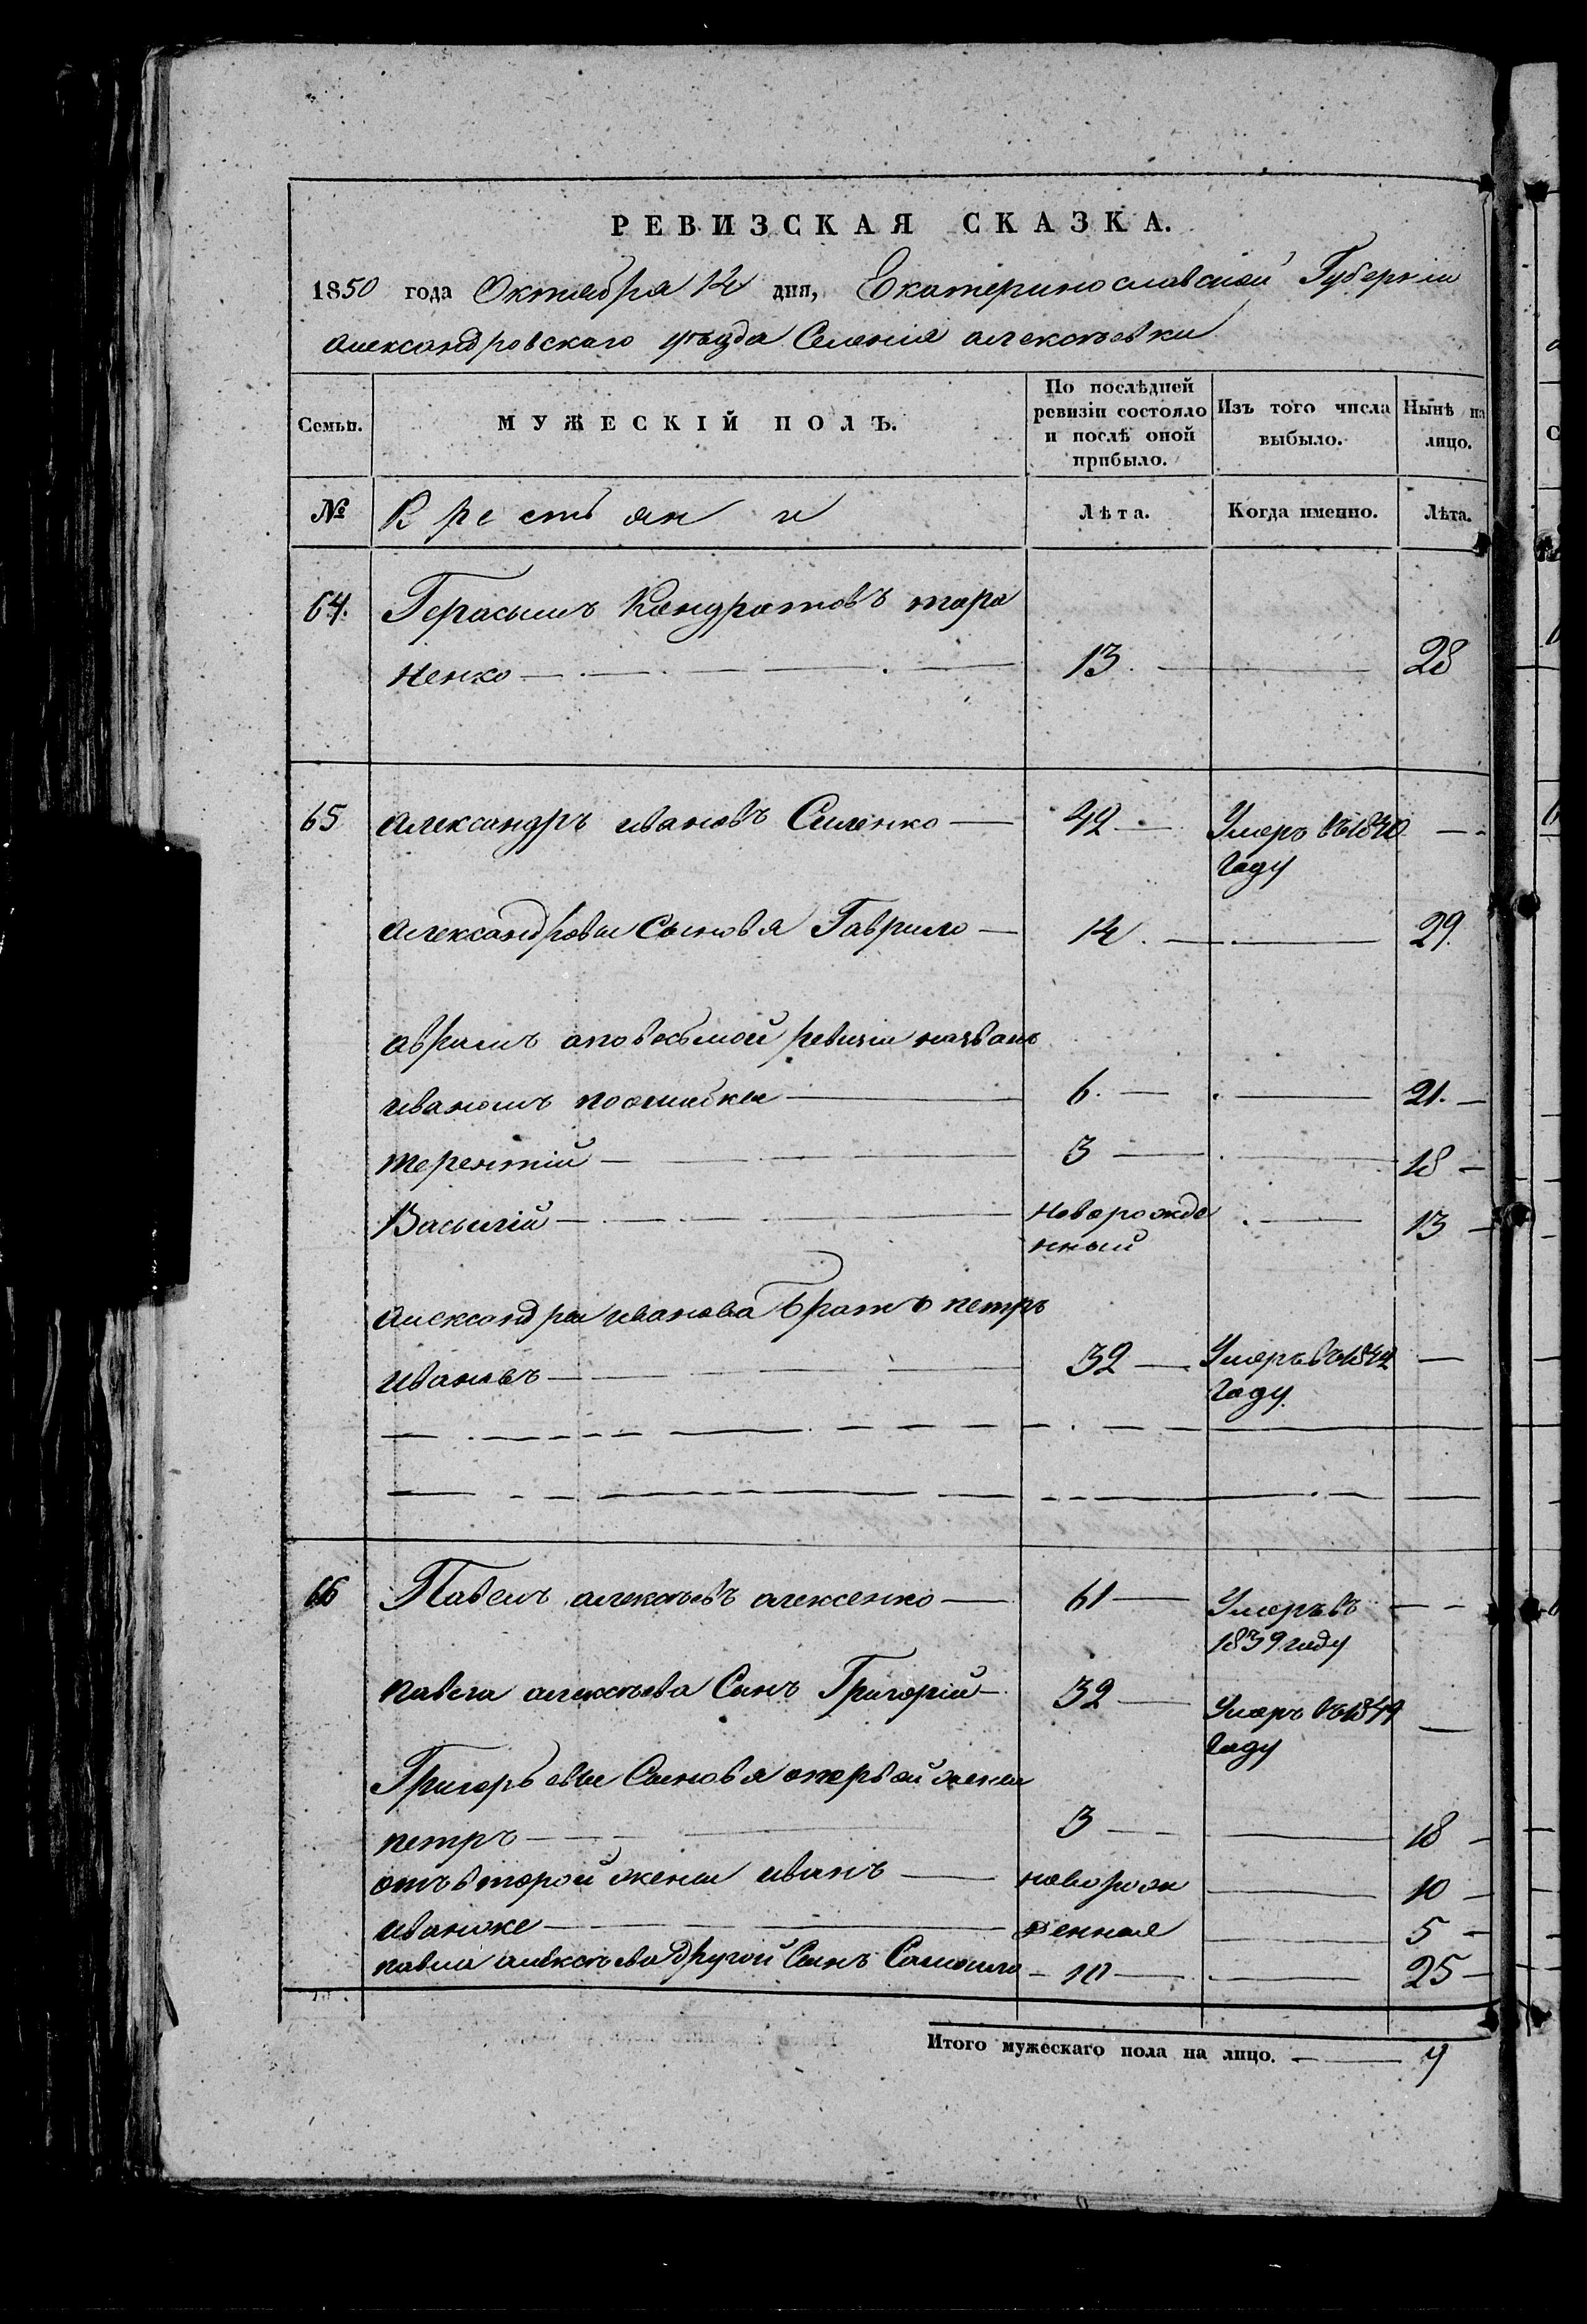 РЕВИЗСКАЯ СКАЗКА.
1850 года Октября 14 дня, Екатеринославской Губернiи
Александровскаго уѣзда Селенiя алексѣевки
Семьи. МУЖЕСКIЙ ПОЛЪ. По послѣдней ревизiи состояло и послѣ оной прибыло. Изъ того числа выбыло. Нынѣ на лицо.
№ Крестьяни Лѣта. Когда именно. Лѣта.
64. Герасымъ Кондратовъ тара
ненко 13. 28
65 Александръ ивановъ Силенко 42 Умеръ въ 1840
году
Александровы Сыновя Гаврило 14. 29.
аврамъ аповосьмой ревизiи названъ
иваномъ поошибки 6. 21.
терентiй 3 18
Васылiй Новорожде 13
нный
Александра иванова братъ петръ
ивановъ 32 Умеръ въ 1842
году.
66 Павелъ алексѣевъ алексенко 61 Умеръ въ
1839 году
павла алексѣева Сынъ Григорiй 32 Умеръ въ 1849
году
Григорьевы Сыновя отпервой жены
петръ 3 18
отъ второй жены иванъ новорож 10
иванже денная 5
павла алексѣева другой Сынъ Самойло 10 25
Итого мужескаго пола на лицо. 9